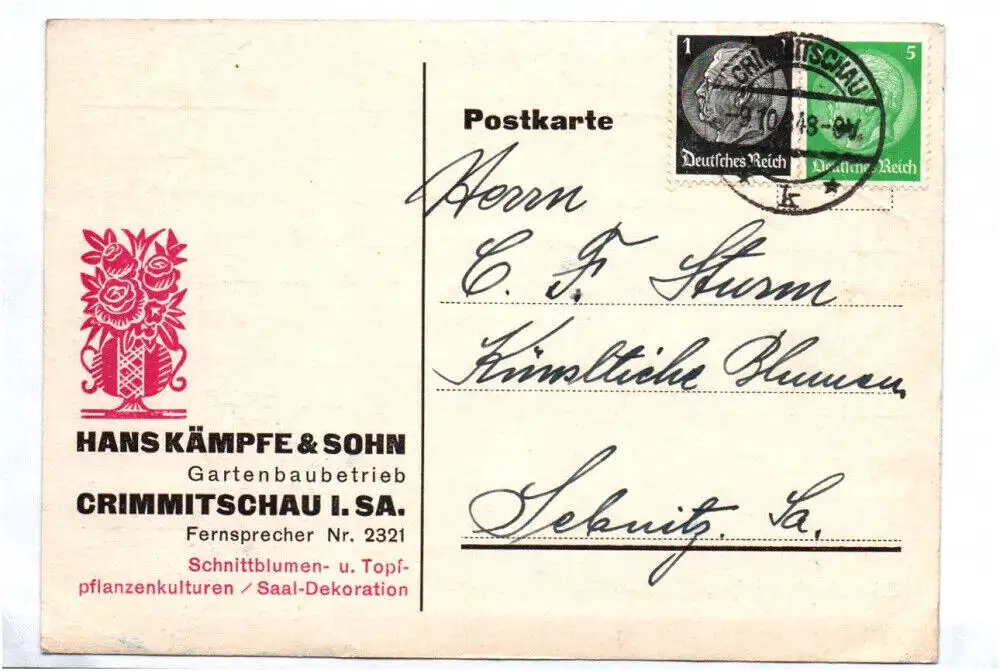 HANS KÄMPFE & SOHN
Gartenbaubetrieb
CRIMMITSCHAU I. SA.
Fernsprecher Nr. 2321
Schnittblumen- u. Topf-
pflanzenkulturen / Saal-Dekoration
Postkarte
1
5
Deutsches Reich
Deutsches Reich
CRIMMITSCHAU
k
Herrn
C. F. Sturm
Künstliche Blumen
Sebnitz. Sa.